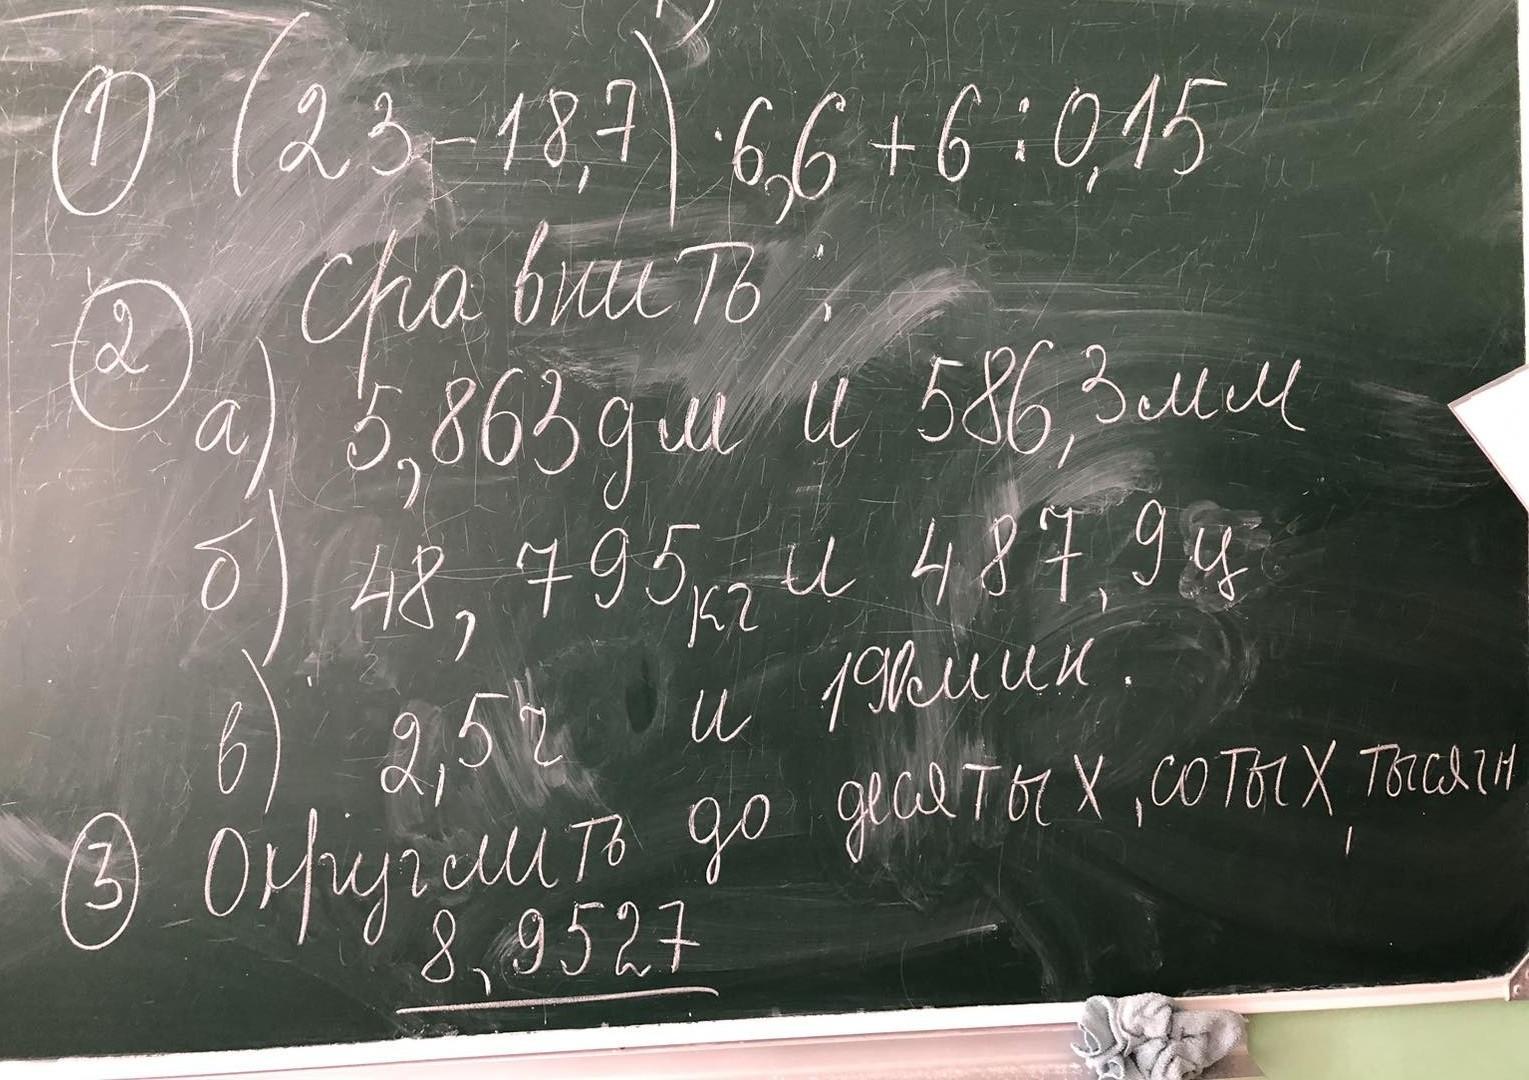 ① (23-18,7)·6,6+6:0,15
② Сравнить:
а) 5,863дм и 586,3мм
б) 48,795кг и 487,9ц
в) 2,5ч и мин.
③ Округлить до десятых, сотых, тысячн
8,9527